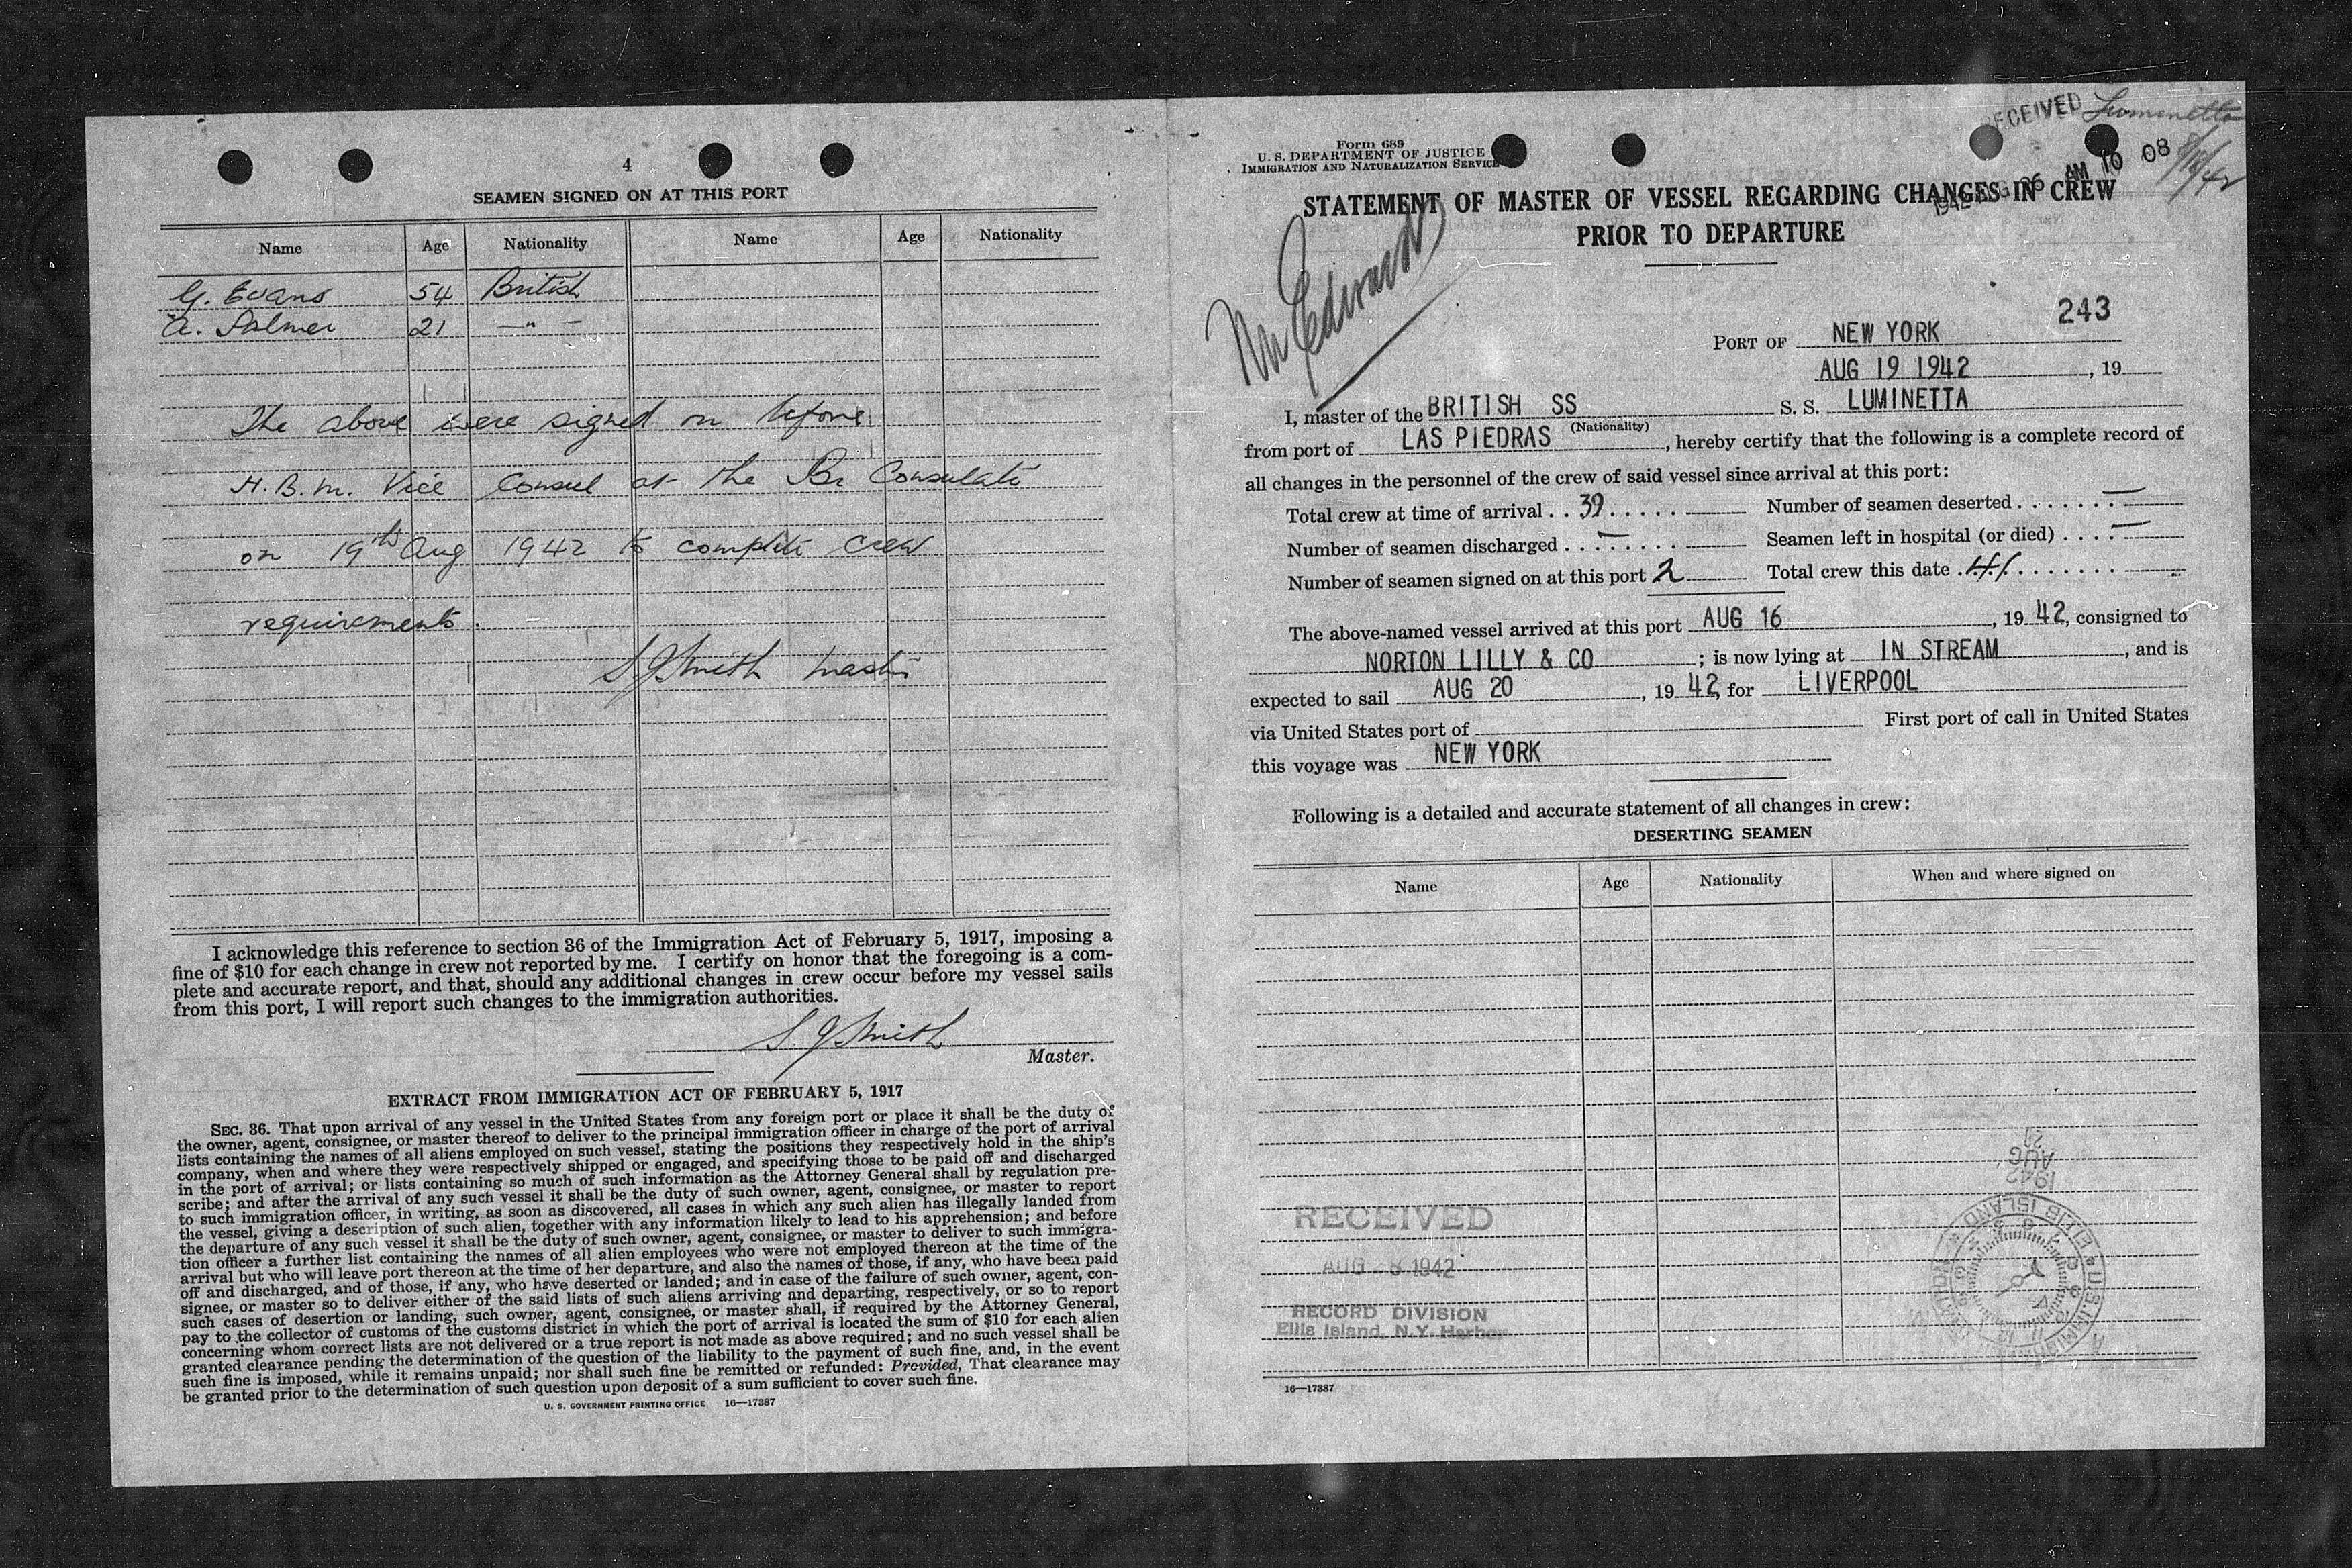 4
SEAMEN SIGNED ON AT THIS PORT
Name Age Nationality Name Age Nationality
G. Evans 54 British
A. Palmer 21 — " —
The above were signed on before
H.B.M. Vice Consul at the Br Consulate
on 19th Aug 1942 to complete crew
requirements.
S J Smith Master
I acknowledge this reference to section 36 of the Immigration Act of February 5, 1917, imposing a
fine of $10 for each change in crew not reported by me. I certify on honor that the foregoing is a com-
plete and accurate report, and that, should any additional changes in crew occur before my vessel sails
from this port, I will report such changes to the immigration authorities.
S. J Smith
Master.
EXTRACT FROM IMMIGRATION ACT OF FEBRUARY 5, 1917
SEC. 36. That upon arrival of any vessel in the United States from any foreign port or place it shall be the duty of
the owner, agent, consignee, or master thereof to deliver to the principal immigration officer in charge of the port of arrival
lists containing the names of all aliens employed on such vessel, stating the positions they respectively hold in the ship's
company, when and where they were respectively shipped or engaged, and specifying those to be paid off and discharged
in the port of arrival; or lists containing so much of such information as the Attorney General shall by regulation pre-
scribe; and after the arrival of any such vessel it shall be the duty of such owner, agent, consignee, or master to report
to such immigration officer, in writing, as soon as discovered, all cases in which any such alien has illegally landed from
the vessel, giving a description of such alien, together with any information likely to lead to his apprehension; and before
the departure of any such vessel it shall be the duty of such owner, agent, consignee, or master to deliver to such immigra-
tion officer a further list containing the names of all alien employees who were not employed thereon at the time of the
arrival but who will leave port thereon at the time of her departure, and also the names of those, if any, who have been paid
off and discharged, and of those, if any, who have deserted or landed; and in case of the failure of such owner, agent, con-
signee, or master so to deliver either of the said lists of such aliens arriving and departing, respectively, or so to report
such cases of desertion or landing, such owner, agent, consignee, or master shall, if required by the Attorney General,
pay to the collector of customs of the customs district in which the port of arrival is located the sum of $10 for each alien
concerning whom correct lists are not delivered or a true report is not made as above required; and no such vessel shall be
granted clearance pending the determination of the question of the liability to the payment of such fine, and, in the event
such fine is imposed, while it remains unpaid; nor shall such fine be remitted or refunded: Provided, That clearance may
be granted prior to the determination of such question upon deposit of a sum sufficient to cover such fine.
U. S. GOVERNMENT PRINTING OFFICE 16—17387
Form 689
U. S. DEPARTMENT OF JUSTICE
IMMIGRATION AND NATURALIZATION SERVICE
RECEIVED Luminetta
8/19/42
1942 AUG 26 AM 10 08
STATEMENT OF MASTER OF VESSEL REGARDING CHANGES IN CREW
PRIOR TO DEPARTURE
Mr Edwards
243
PORT OF NEW YORK
AUG 19 1942, 19
I, master of the BRITISH SS S. S. LUMINETTA
(Nationality)
from port of LAS PIEDRAS, hereby certify that the following is a complete record of
all changes in the personnel of the crew of said vessel since arrival at this port:
Total crew at time of arrival . . 39 . . . . . Number of seamen deserted . . . . . . . —
Number of seamen discharged . . . — . . . . . Seamen left in hospital (or died) . . . . —
Number of seamen signed on at this port 2 Total crew this date . 41 . . . . . . . .
The above-named vessel arrived at this port AUG 16, 19 42, consigned to
NORTON LILLY & CO; is now lying at IN STREAM, and is
expected to sail AUG 20, 19 42, for LIVERPOOL
via United States port of First port of call in United States
this voyage was NEW YORK
Following is a detailed and accurate statement of all changes in crew:
DESERTING SEAMEN
Name Age Nationality When and where signed on
1942
AUG
21
RECEIVED
AUG 1942
RECORD DIVISION
Ellis Island, N.Y. Harbor
16—17387